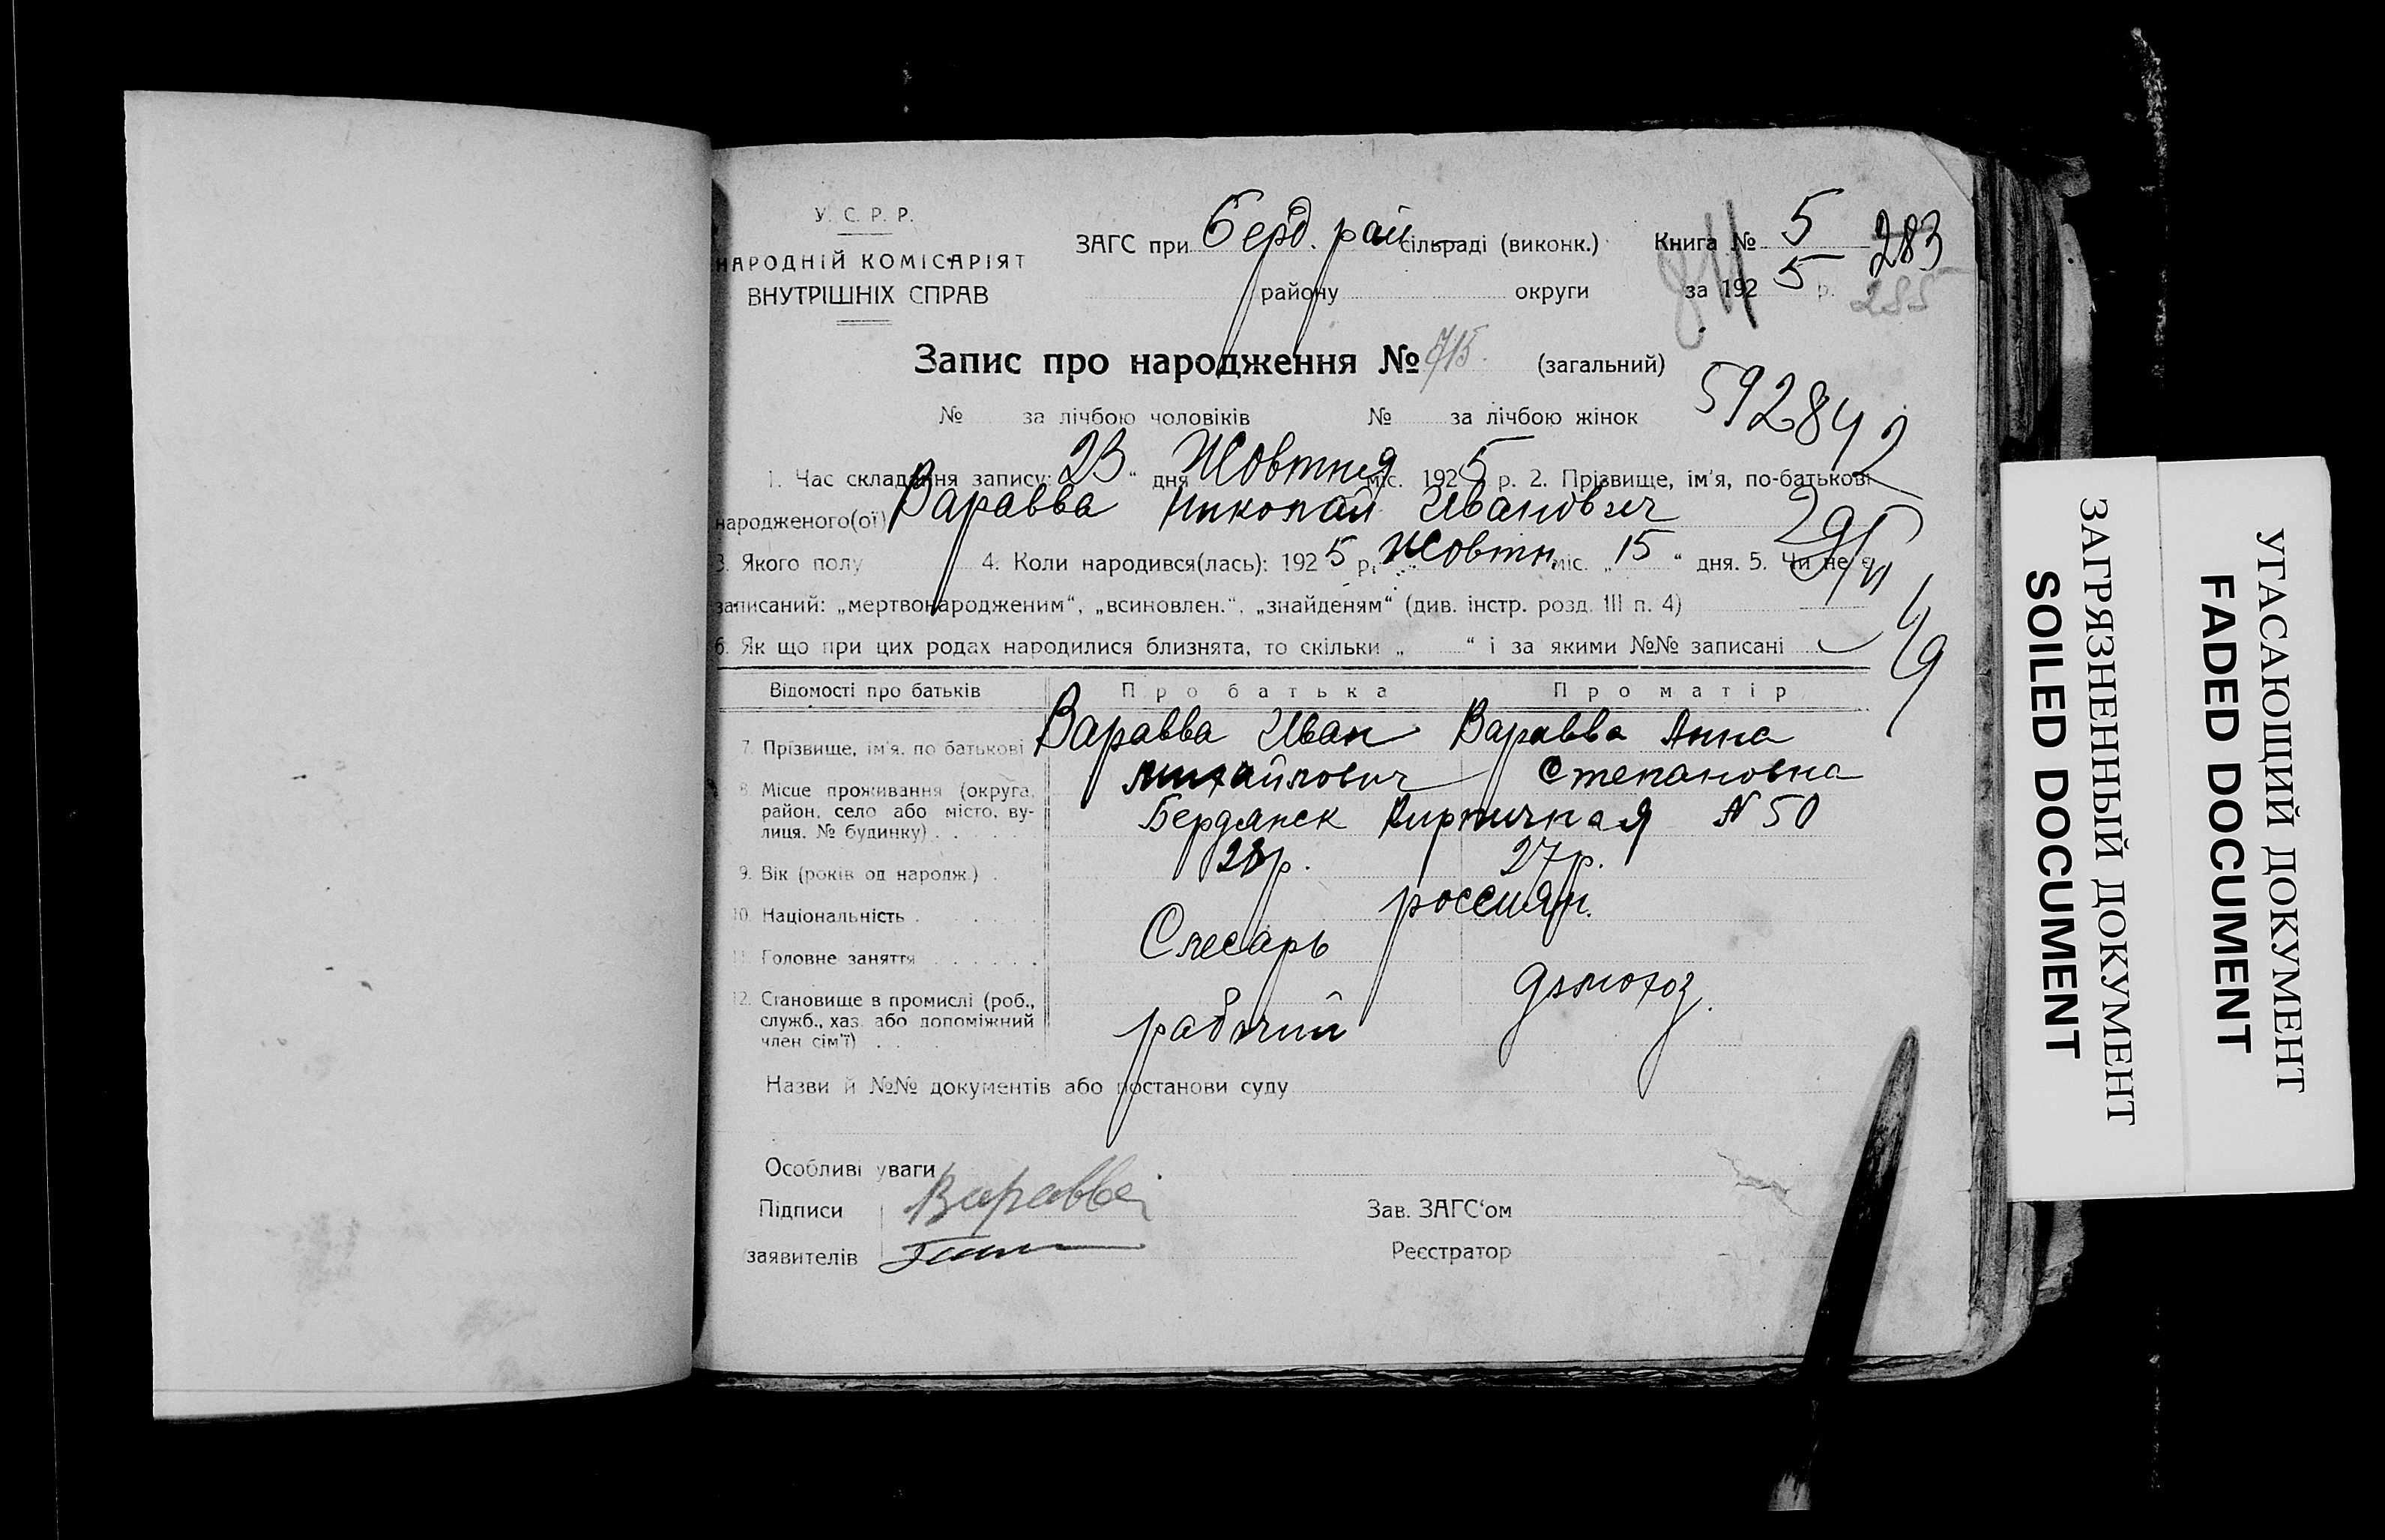 У. С. Р. Р.
НАРОДНІЙ КОМІСАРІЯТ
ВНУТРІШНІХ СПРАВ
ЗАГС при Берд. рай сільраді (виконк.)
району округи
Книга № 5
283
за 1925 р.
285
84
Запис про народження № 715. (загальний)
№ за лічбою чоловіків № за лічбою жінок
592842
1. Час складання запису: 23 " дня Жовтня міс. 1925 р. 2. Прізвище, ім'я, по-батькові
народженого(ої) Варавва Николай Иванович
3. Якого полу 4. Коли народився(лась): 1925 р. Жовтн міс. „ 15 " дня. 5. Чи не є
записаний: „мертвонародженим", „всиновлен.", „знайденям" (див. інстр. розд. III п. 4)
6. Як що при цих родах народилися близнята, то скільки „ " і за якими №№ записані
Відомості про батьків Про батька Про матір
7. Прізвище, ім'я, по батькові Варавва Иван Варавва Анна
Михайлович Степановна
8. Місце проживання (округа,
район, село або місто, ву-
лиця, № будинку) . . . . . Бердянск Кирпичная N 50
9. Вік (років од народж.) . 28 р. 27 р.
10. Національність . . . . . россиян.
11. Головне заняття . . . . . . Слесарь
12. Становище в промислі (роб.,
служб., хаз. або допоміжний
член сім'ї) . . рабочий домохоз.
Назви й №№ документів або постанови суду
Особливі уваги
Підписи Варавва Зав. ЗАГС'ом
заявителів Реєстратор
ЗАГРЯЗНЕННЫЙ ДОКУМЕНТ
SOILED DOCUMENT
УГАСАЮЩИЙ ДОКУМЕНТ
FADED DOCUMENT